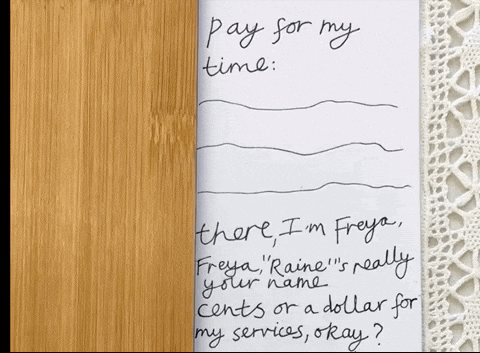 pay for my
time:
there, I'm Freya,
Freya, "Raine"'s really
your name
cents or a dollar for
my services, okay?